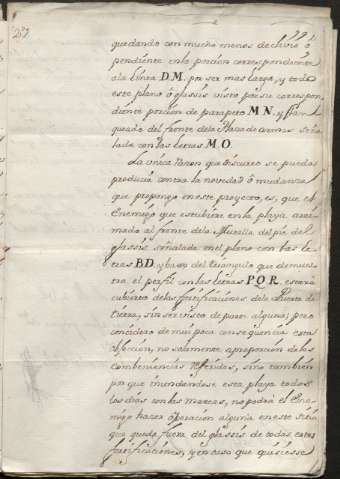 quedando con mucho menos declivio ó
pendiente en la porcion correspondiente
ala linea D.M. pr. ser mas larga, y todo
este plano ó glassis visto por su correspon
diente porcion de parapeto MN. y flan
queado del frente dela Plaza de armas seña
lada con las letras M.O.
La unica razon que discurro se puedas
producir contra la novedad ó mudanza
que propongo en este proyecto, es, que el
Enemigo que estubiere en la playa, arri
mado al frente dela Muralla del pie del
glassis señalada en el plano con las le
tras BD. y baxo del triangulo que demues
tra el perfil con las letras P.Q.R. estará
cubierto delas fortificaciones dela Puerta de
tierra, sin ser visto de parte alguna; pero
concidero de mui poca consequencia esta
obgecion, no solamente aproporcion delas
combeniencias referidas, sino tambien
pr. que inundandose esta playa todos
los dias con las mareas, no podrá el Ene
migo hazer operacion alguna en este sitio
que queda fuera del glassis de todas estas
fortificaciones, y en caso que quisiesse